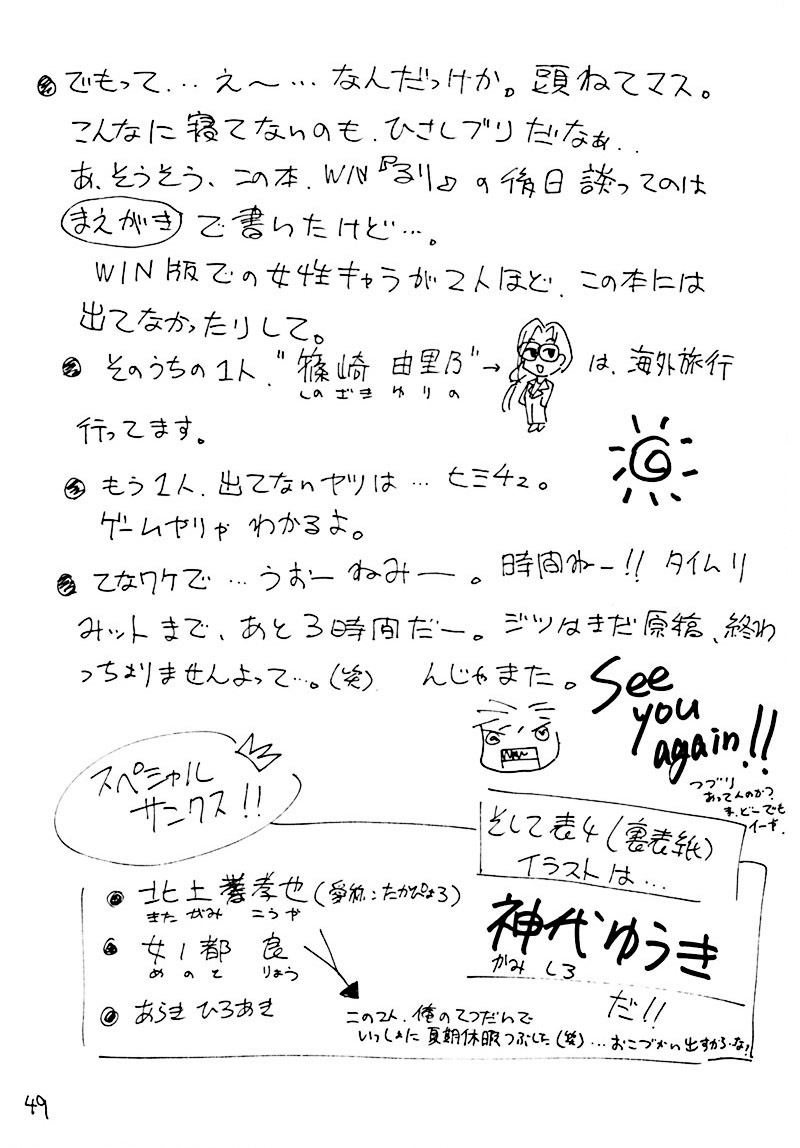 でもって…え〜…なんだっけか。頭ねてマス。
こんなに寝てないのも、ひさしブリだなぁ..
あ、そうそう、この本、WIN『るり』の後日談ってのは
まえがきで書いたけど…。
WIN版での女性キャラが2人ほど、この本には
出てなかったりして。
そのうちの1人、"篠崎 由里乃"→は、海外旅行
しのざき ゆりの
行ってます。
もう1人、出てないヤツは…ヒミチュ。
ゲームヤリゃわかるよ。
てなワケで…うおーねみー。時間ねー!! タイムリ
ミットまで、あと3時間だー。ジツはまだ原稿、終わ
っちょりませんよって…。(笑) んじゃまた。
See
you
again!!
つづり
あってんのか?
ま、どーでも
イーや。
スペシャル
サンクス!!
そして表4(裏表紙)
イラストは…
神代ゆうき
かみしろ
だ!!
北上 孝也(愛称:たかぴょろ)
きたがみ こうや
女ノ都 良
めのと りょう
あらき ひろあき
この2人、俺のてつだいで
いっしょに夏期休暇つぶした(笑)…おこづかい出すからな!
49